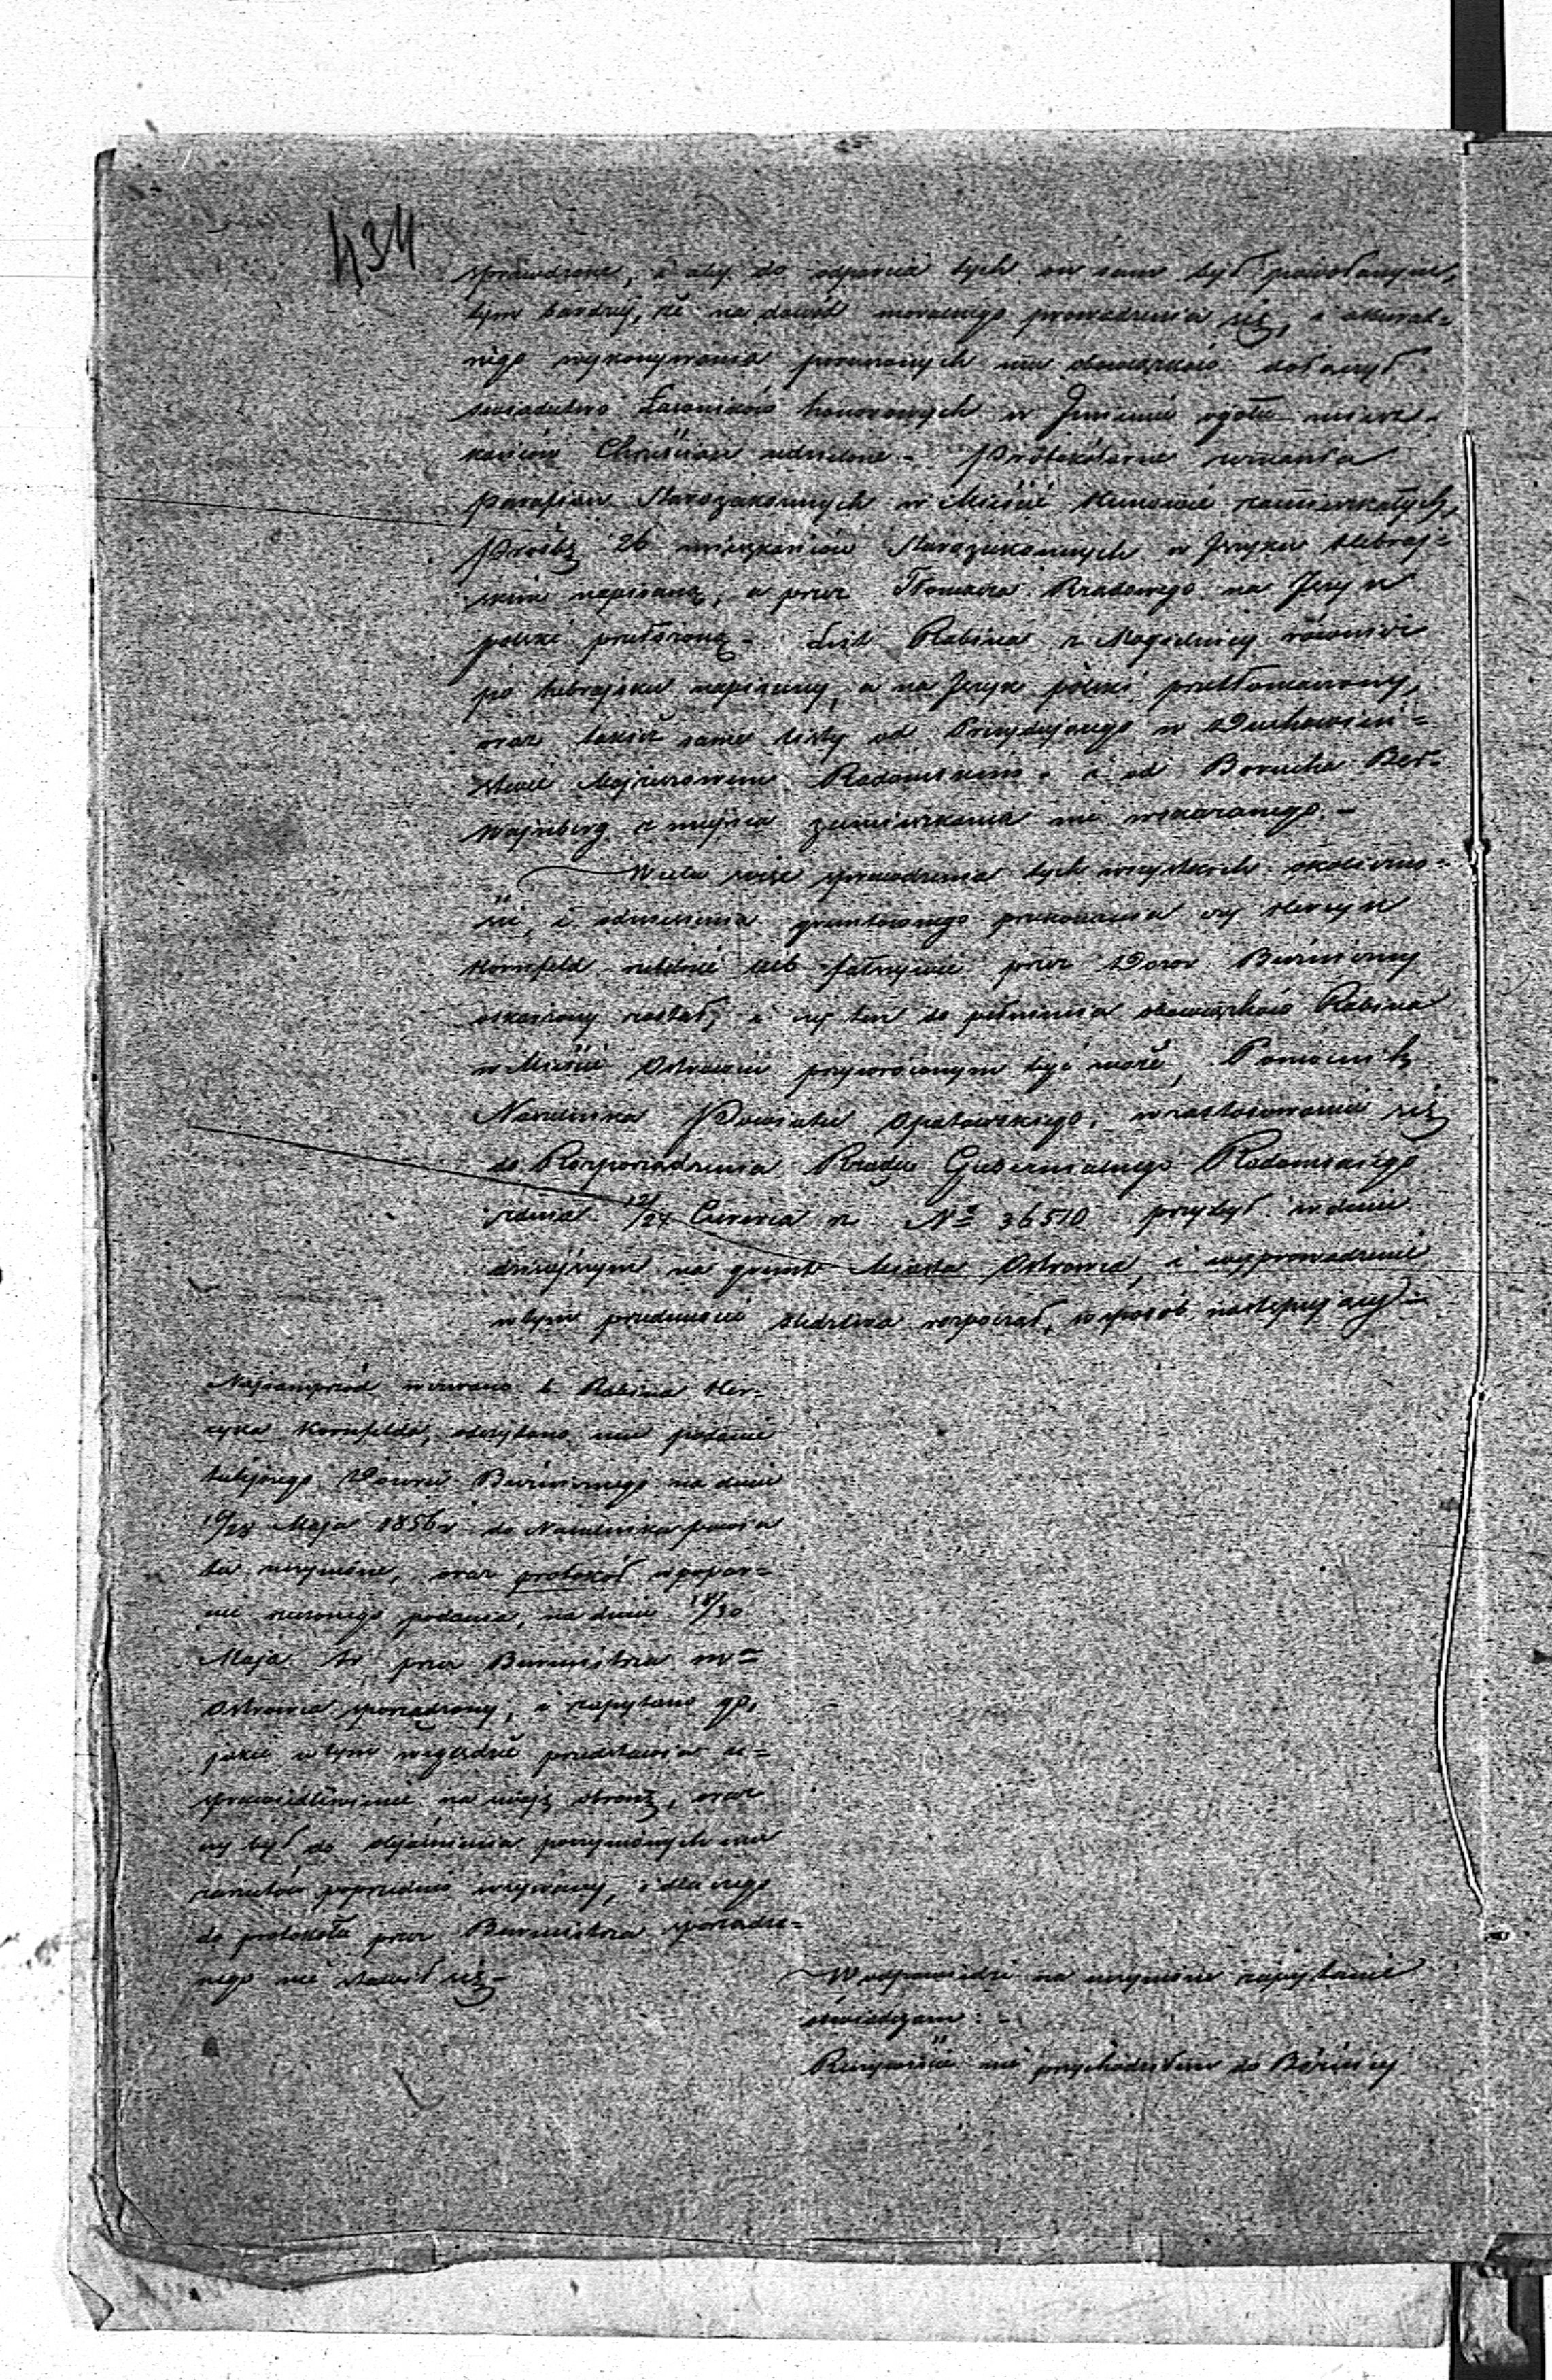 434
sprawdzone, i aby do odparcia tych on sam był powołanym,
tym bardziej, że na dowód moralnego prowadzenia się, i akurat=
nego wykonywania poruczonych mu obowiązków dołączył
świadectwo Ławników honorowych w Imieniu ogółu miesz-
kańców Chrześcian udzielone - Protokólarne zeznania
Parafian Starozakonnych w Mieście Kunowie zamieszkałych,
Prośbę 26 mieszkańców Starozakonnych w Języku Hebraj=
skim napisaną, a przez Tłomacza Rządowego na Język
polski przełożoną - List Rabina z Mogielnicy również
po hebrajsku napisany, a na Język polski przetłomaczony,
oraz takież same listy od Prezydującego w Duchowień=
stwie Mojżeszowem Radomskim - i od Borucha Ber-
Wajnberg z miejsca zamieszkania nie wskazanego. -
W celu więc sprawdzenia tych wszystkich okoliczno=
ści, i gruntownego przekonania czy Herszyk
Kornfeld rzetelnie lub fałszywie przez Dozor Bóżniczny
oskarżony został, i czy ten do pełnienia obowiązków Rabina
w Mieście Ostrowcu przywróconym być może, Pomocnik
Naczelnika Powiatu Opatowskiego, w zastosowaniu się
do Rozporządzenia Rządu Gubernialnego Radomskiego
z dnia 12/24 Czerwca r. Nº 36510 przybył w dniu
dzisiejszym na grunt Miasta Ostrowca, i wyprowadzenie
w tym przedmiocie śledztwa rozpoczął, w sposób następujący -
Najsamprzód wezwano b. Rabina Her-
szyka Kornfelda, odczytano mu podanie
tutejszego Dozoru Bóżnicznego na dniu
16/28 Maja 1856 r. do Naczelnika powia
tu uczynione, oraz protokół w popar=
cie rzeczonego podania, na dniu 18/30
Maja tr. przez Burmistrza m=
Ostrowca sporządzony, i zapytano go,
jakie w tym względzie przedstawia u=
sprawiedliwienie na swoję obronę, oraz
czy był do objaśnienia poczynionych mu
zarzutów poprzednio wzywany, i dla czego
do protokołu przez Burmistrza sporządzo=
nego nie stawił się -
W odpowiedzi na uczynione zapytanie
oświadczam : -
Rzeczywiście nie przychodziłem do Bóżnicy